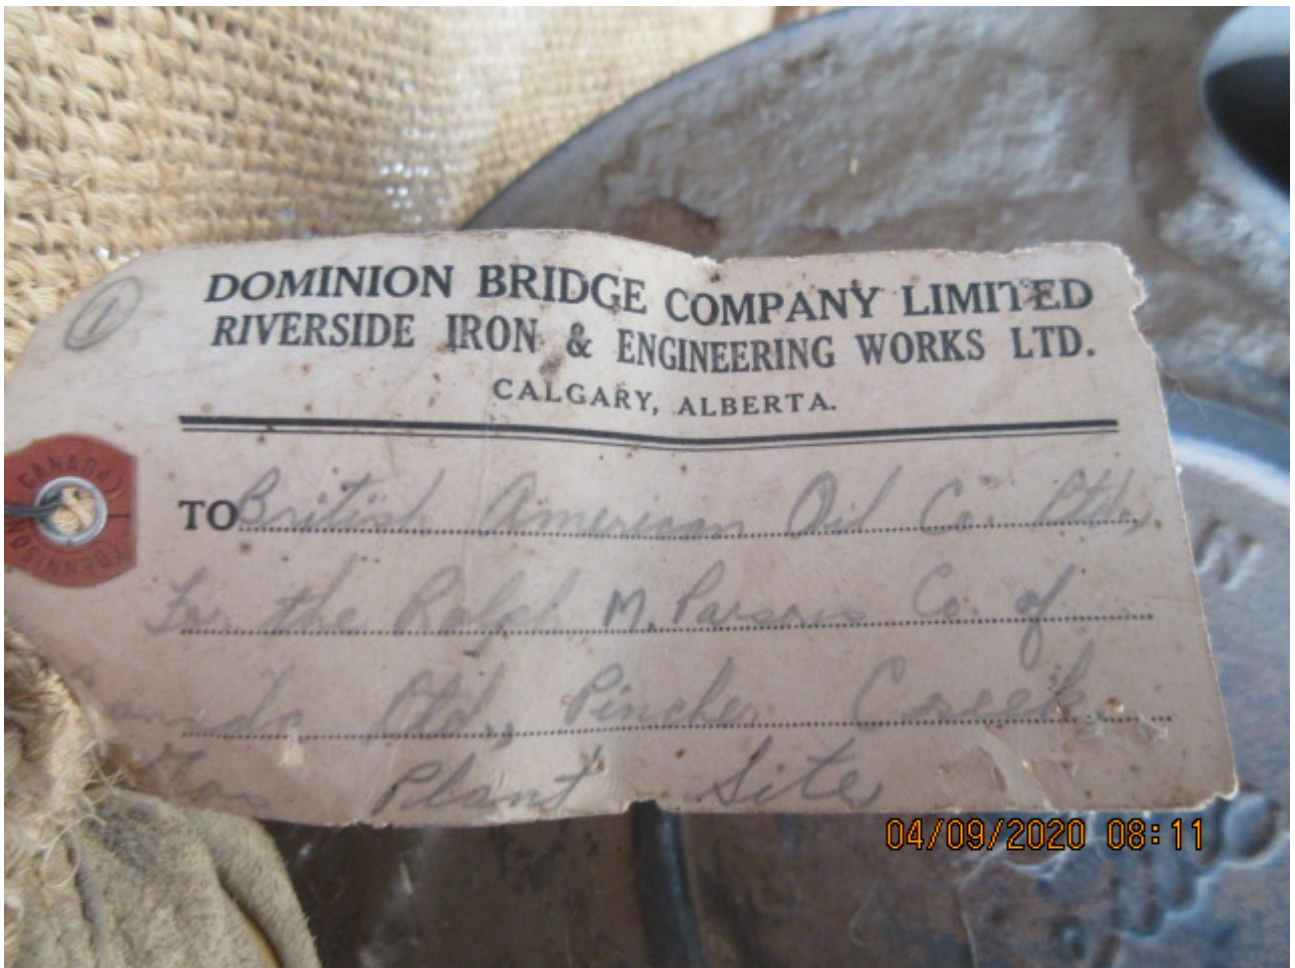 ①
DOMINION BRIDGE COMPANY LIMITED
RIVERSIDE IRON & ENGINEERING WORKS LTD.
CALGARY, ALBERTA.
CANADA
DENNISON
TO British American Oil Co. Ltd.,
For the Ralph M. Parsons Co. of
Canada Ltd., Pincher Creek
Gas Plant Site,
04/09/2020 08:11